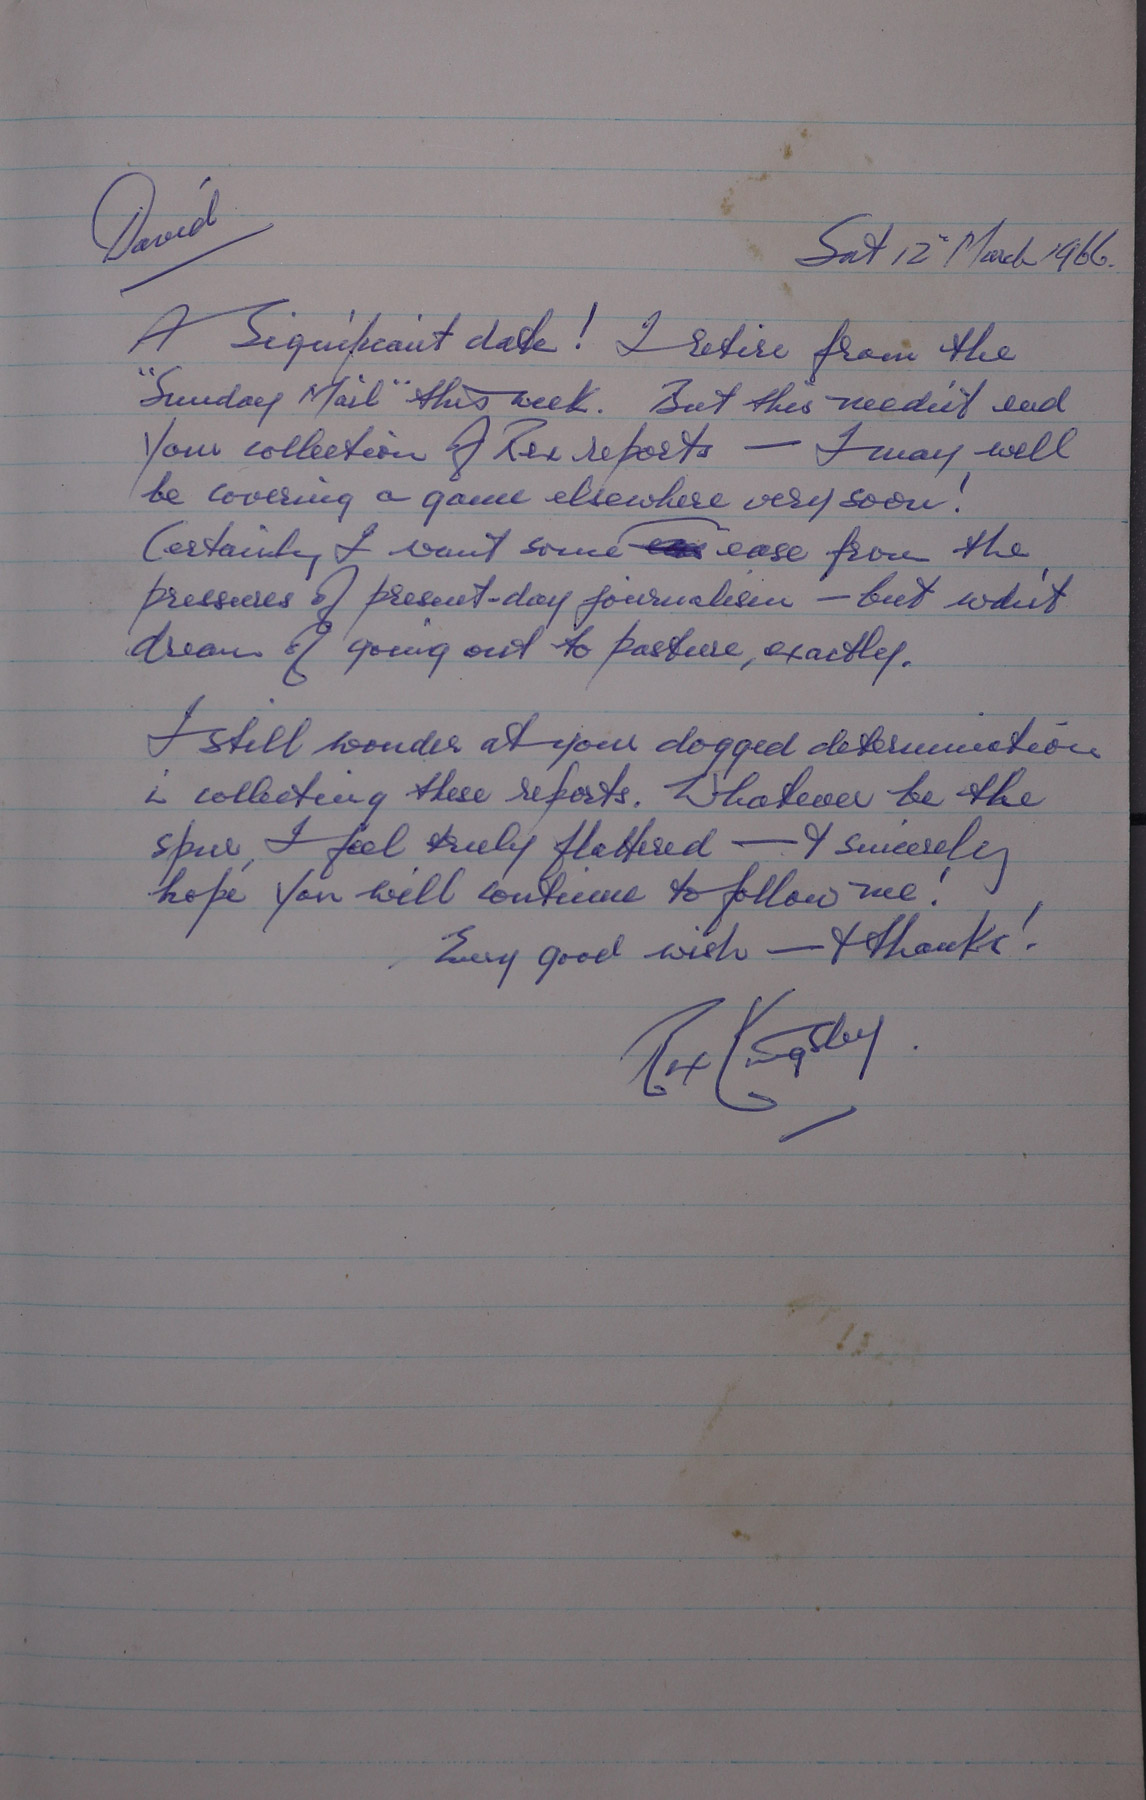 David
Sat 12th March 1966.
A Significant date! I retire from the
"Sunday Mail" this week. But this needn't end
your collection of Rex reports — I may well
be covering a game elsewhere very soon!
Certainly, I want some ease from the
pressures of present-day journalism — but wdn't
dream of going out to pasture, exactly.
I still wonder at your dogged determination
in collecting these reports. Whatever be the
spur, I feel truly flattered — & sincerely
hope you will continue to follow me!
Every good wish — & thanks!
Rex Kingsley.